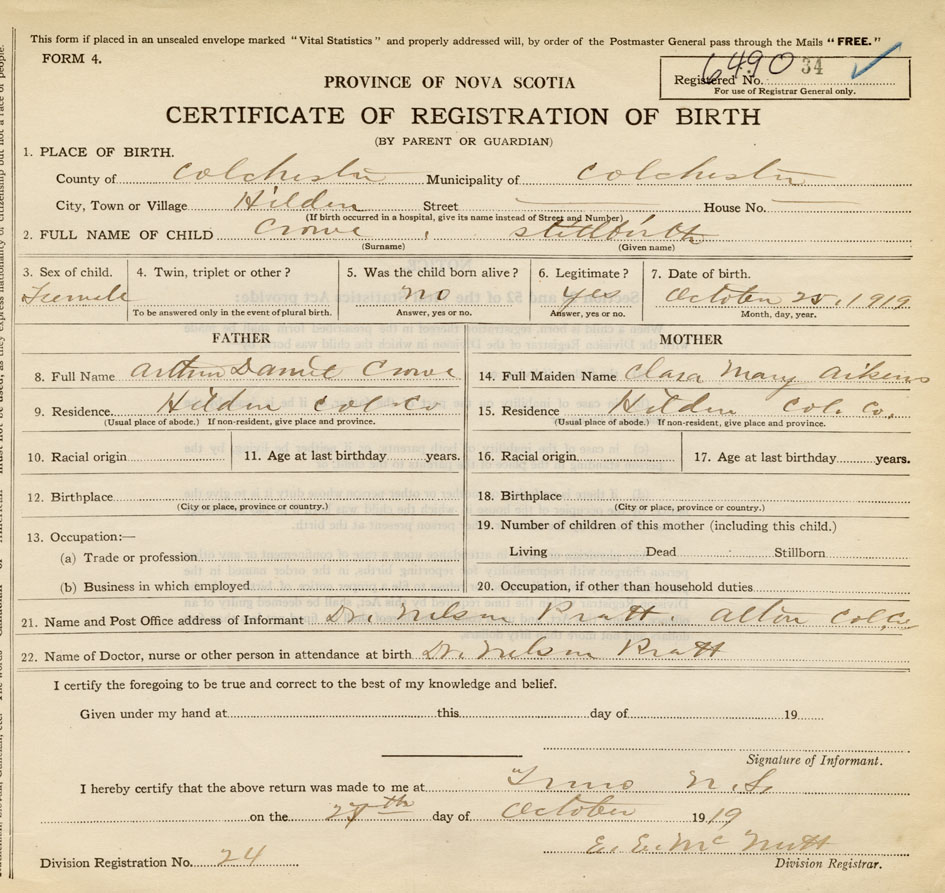 This form if placed in an unsealed envelope marked "Vital Statistics" and properly addressed will, by order of the Postmaster General pass through the Mails "FREE."
FORM 4.
6490 34
Registered No.
For use of Registrar General only.
PROVINCE OF NOVA SCOTIA
CERTIFICATE OF REGISTRATION OF BIRTH
(BY PARENT OR GUARDIAN)
1. PLACE OF BIRTH.
County of Colchester Municipality of Colchester
City, Town or Village Hilden Street House No.
(If birth occurred in a hospital, give its name instead of Street and Number)
2. FULL NAME OF CHILD Crowe, stillbirth
(Surname) (Given name)
3. Sex of child. 4. Twin, triplet or other? 5. Was the child born alive? 6. Legitimate? 7. Date of birth.
Female no yes October 25, 1919
To be answered only in the event of plural birth. Answer, yes or no. Answer, yes or no. Month, day, year.
FATHER MOTHER
8. Full Name Arthur Daniel Crowe 14. Full Maiden Name Clara Mary Aikens
9. Residence. Hilden Col. Co 15. Residence Hilden Col. Co.
(Usual place of abode.) If non-resident, give place and province. (Usual place of abode.) If non-resident, give place and province.
10. Racial origin 11. Age at last birthday years. 16. Racial origin 17. Age at last birthday years.
12. Birthplace 18. Birthplace
(City or place, province or country.) (City or place, province or country.)
13. Occupation:— 19. Number of children of this mother (including this child.)
(a) Trade or profession Living Dead Stillborn
(b) Business in which employed 20. Occupation, if other than household duties
21. Name and Post Office address of Informant Dr. Nelson Pratt. Alton Col. Co
22. Name of Doctor, nurse or other person in attendance at birth Dr. Nelson Pratt
I certify the foregoing to be true and correct to the best of my knowledge and belief.
Given under my hand at this day of 19
Signature of Informant.
I hereby certify that the above return was made to me at Truro N.S.
on the 27th day of October 1919
E. E. McNutt
Division Registration No. 24 Division Registrar.